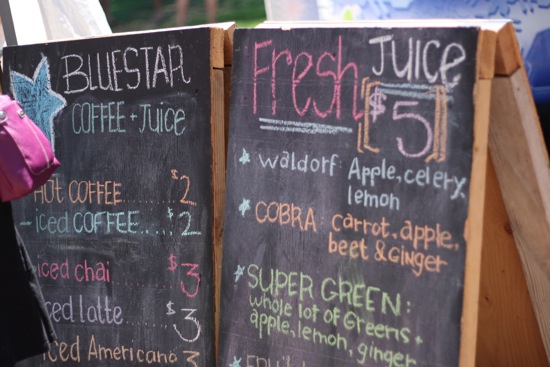 BLUESTAR
COFFEE + Juice
HOT COFFEE.... $2
iced COFFEE..... $2
iced chai $3
iced latte.... $3
iced Americano 3
Fresh Juice
$5
waldorf: Apple, celery,
lemon
COBRA: carrot, apple,
beet & GinGer
SUPER GREEN:
whole lot of Greens +
apple, lemon, ginger